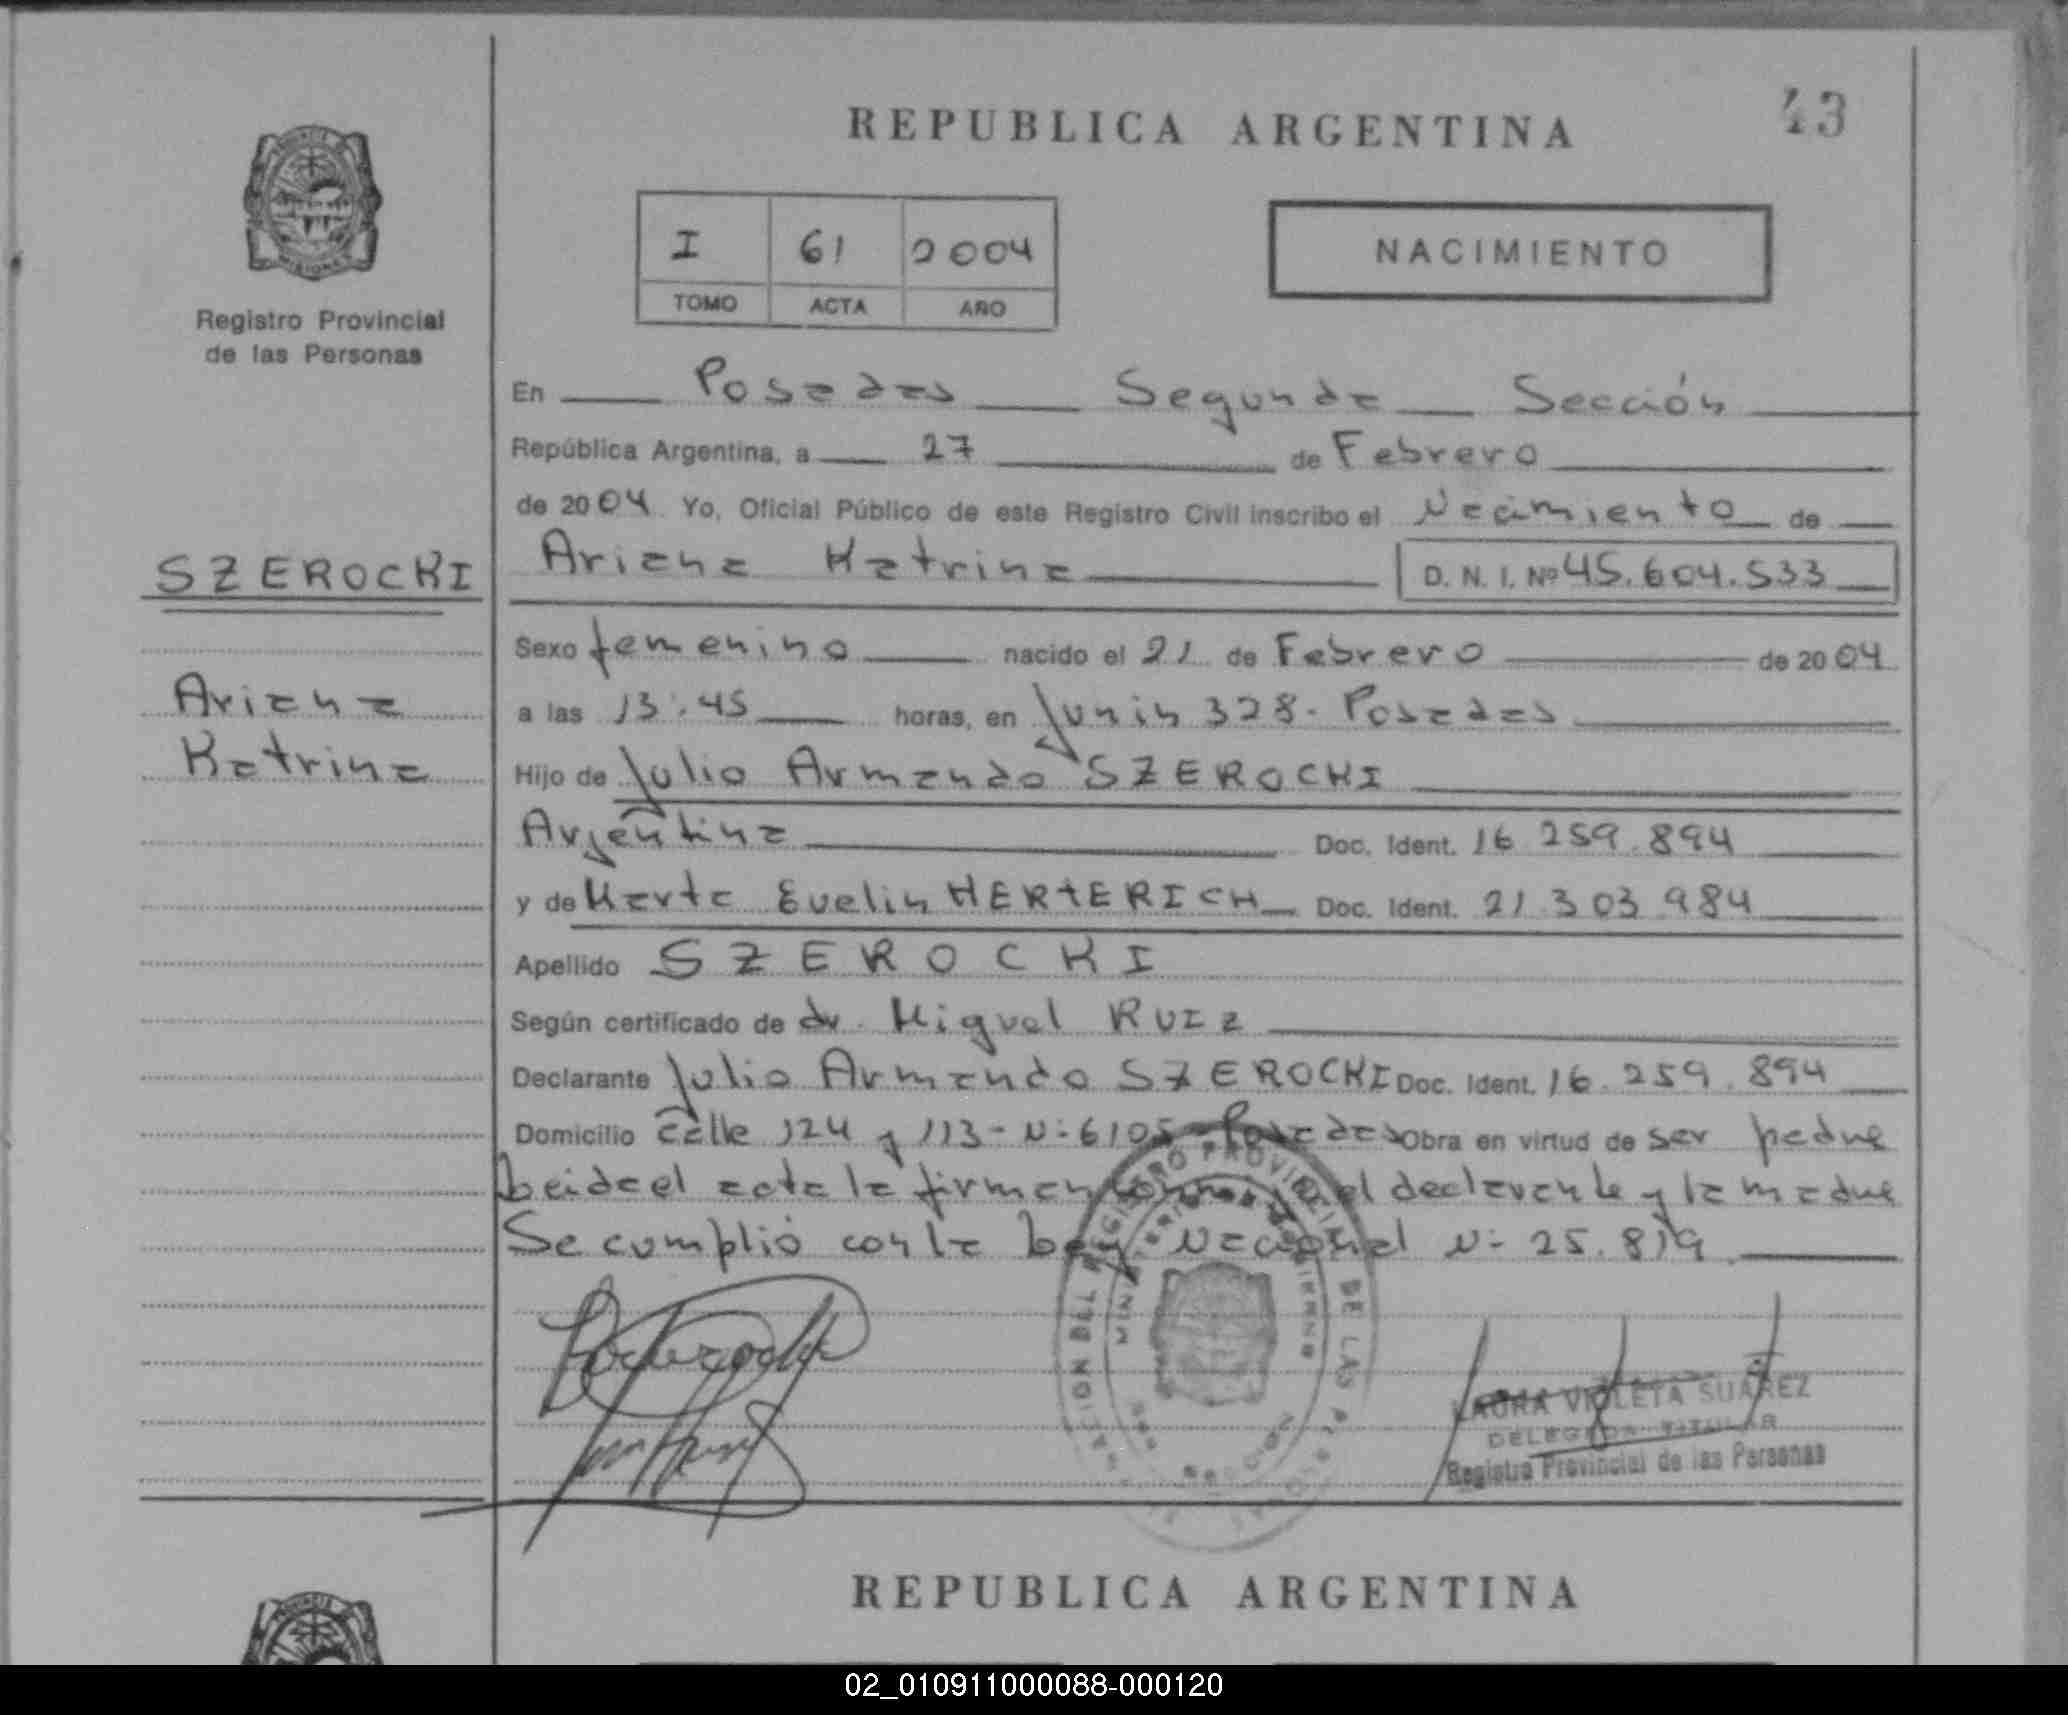 REPUBLICA ARGENTINA
43
Registro Provincial
de las Personas
I 61 2004
TOMO ACTA AÑO
NACIMIENTO
En Posadas Segunda Sección
República Argentina, a 27 de Febrero
de 2004 Yo, Oficial Público de este Registro Civil inscribo el Nacimiento de
SZEROCKI
Ariana Katrina D. N. I. Nº 45.604.533
Sexo femenino nacido el 21 de Febrero de 2004
Ariana
a las 13:45 horas, en Junin 328. Posadas
Katrina
Hijo de Julio Armando SZEROCKI
Argentina Doc. Ident. 16 259.894
y de Marta Evelin HERTERICH Doc. Ident. 21.303.984
Apellido SZEROCKI
Según certificado de dr. Miguel RUIZ
Declarante Julio Armando SZEROCKI Doc. Ident. 16.259.894
Domicilio Calle 124 y 113 - Nº 6105 - Posadas Obra en virtud de ser padre
Leida el acta la firman el declarante y la madre
Se cumplió con la Ley Nacional Nº 25.819
REGISTRO PROVINCIAL DE LAS PERSONAS
MINISTERIO DE GOBIERNO
LAURA VIOLETA SUAREZ
DELEGADA TITULAR
Registro Provincial de las Personas
REPUBLICA ARGENTINA
02_010911000088-000120